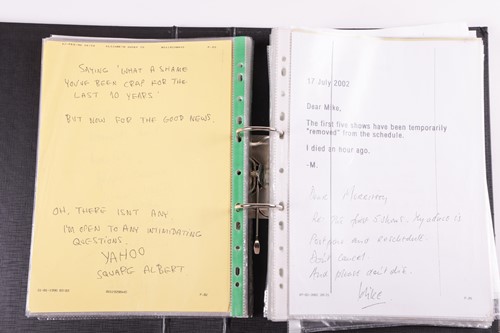 SAYING 'WHAT A SHAME
YOU'VE BEEN CRAP FOR THE
LAST 10 YEARS'
BUT NOW FOR THE GOOD NEWS
OH, THERE ISN'T ANY
I'M OPEN TO ANY INTIMIDATING
QUESTIONS.
YAHOO
SQUARE ALBERT
17 July 2002
Dear Mike,
The first five shows have been temporarily
"removed" from the schedule.
I died an hour ago.
-M.
Dear Morrissey,
Re: first 5 shows. My advice is
Postpone and reschedule
Don't cancel
And please don't die.
Mike